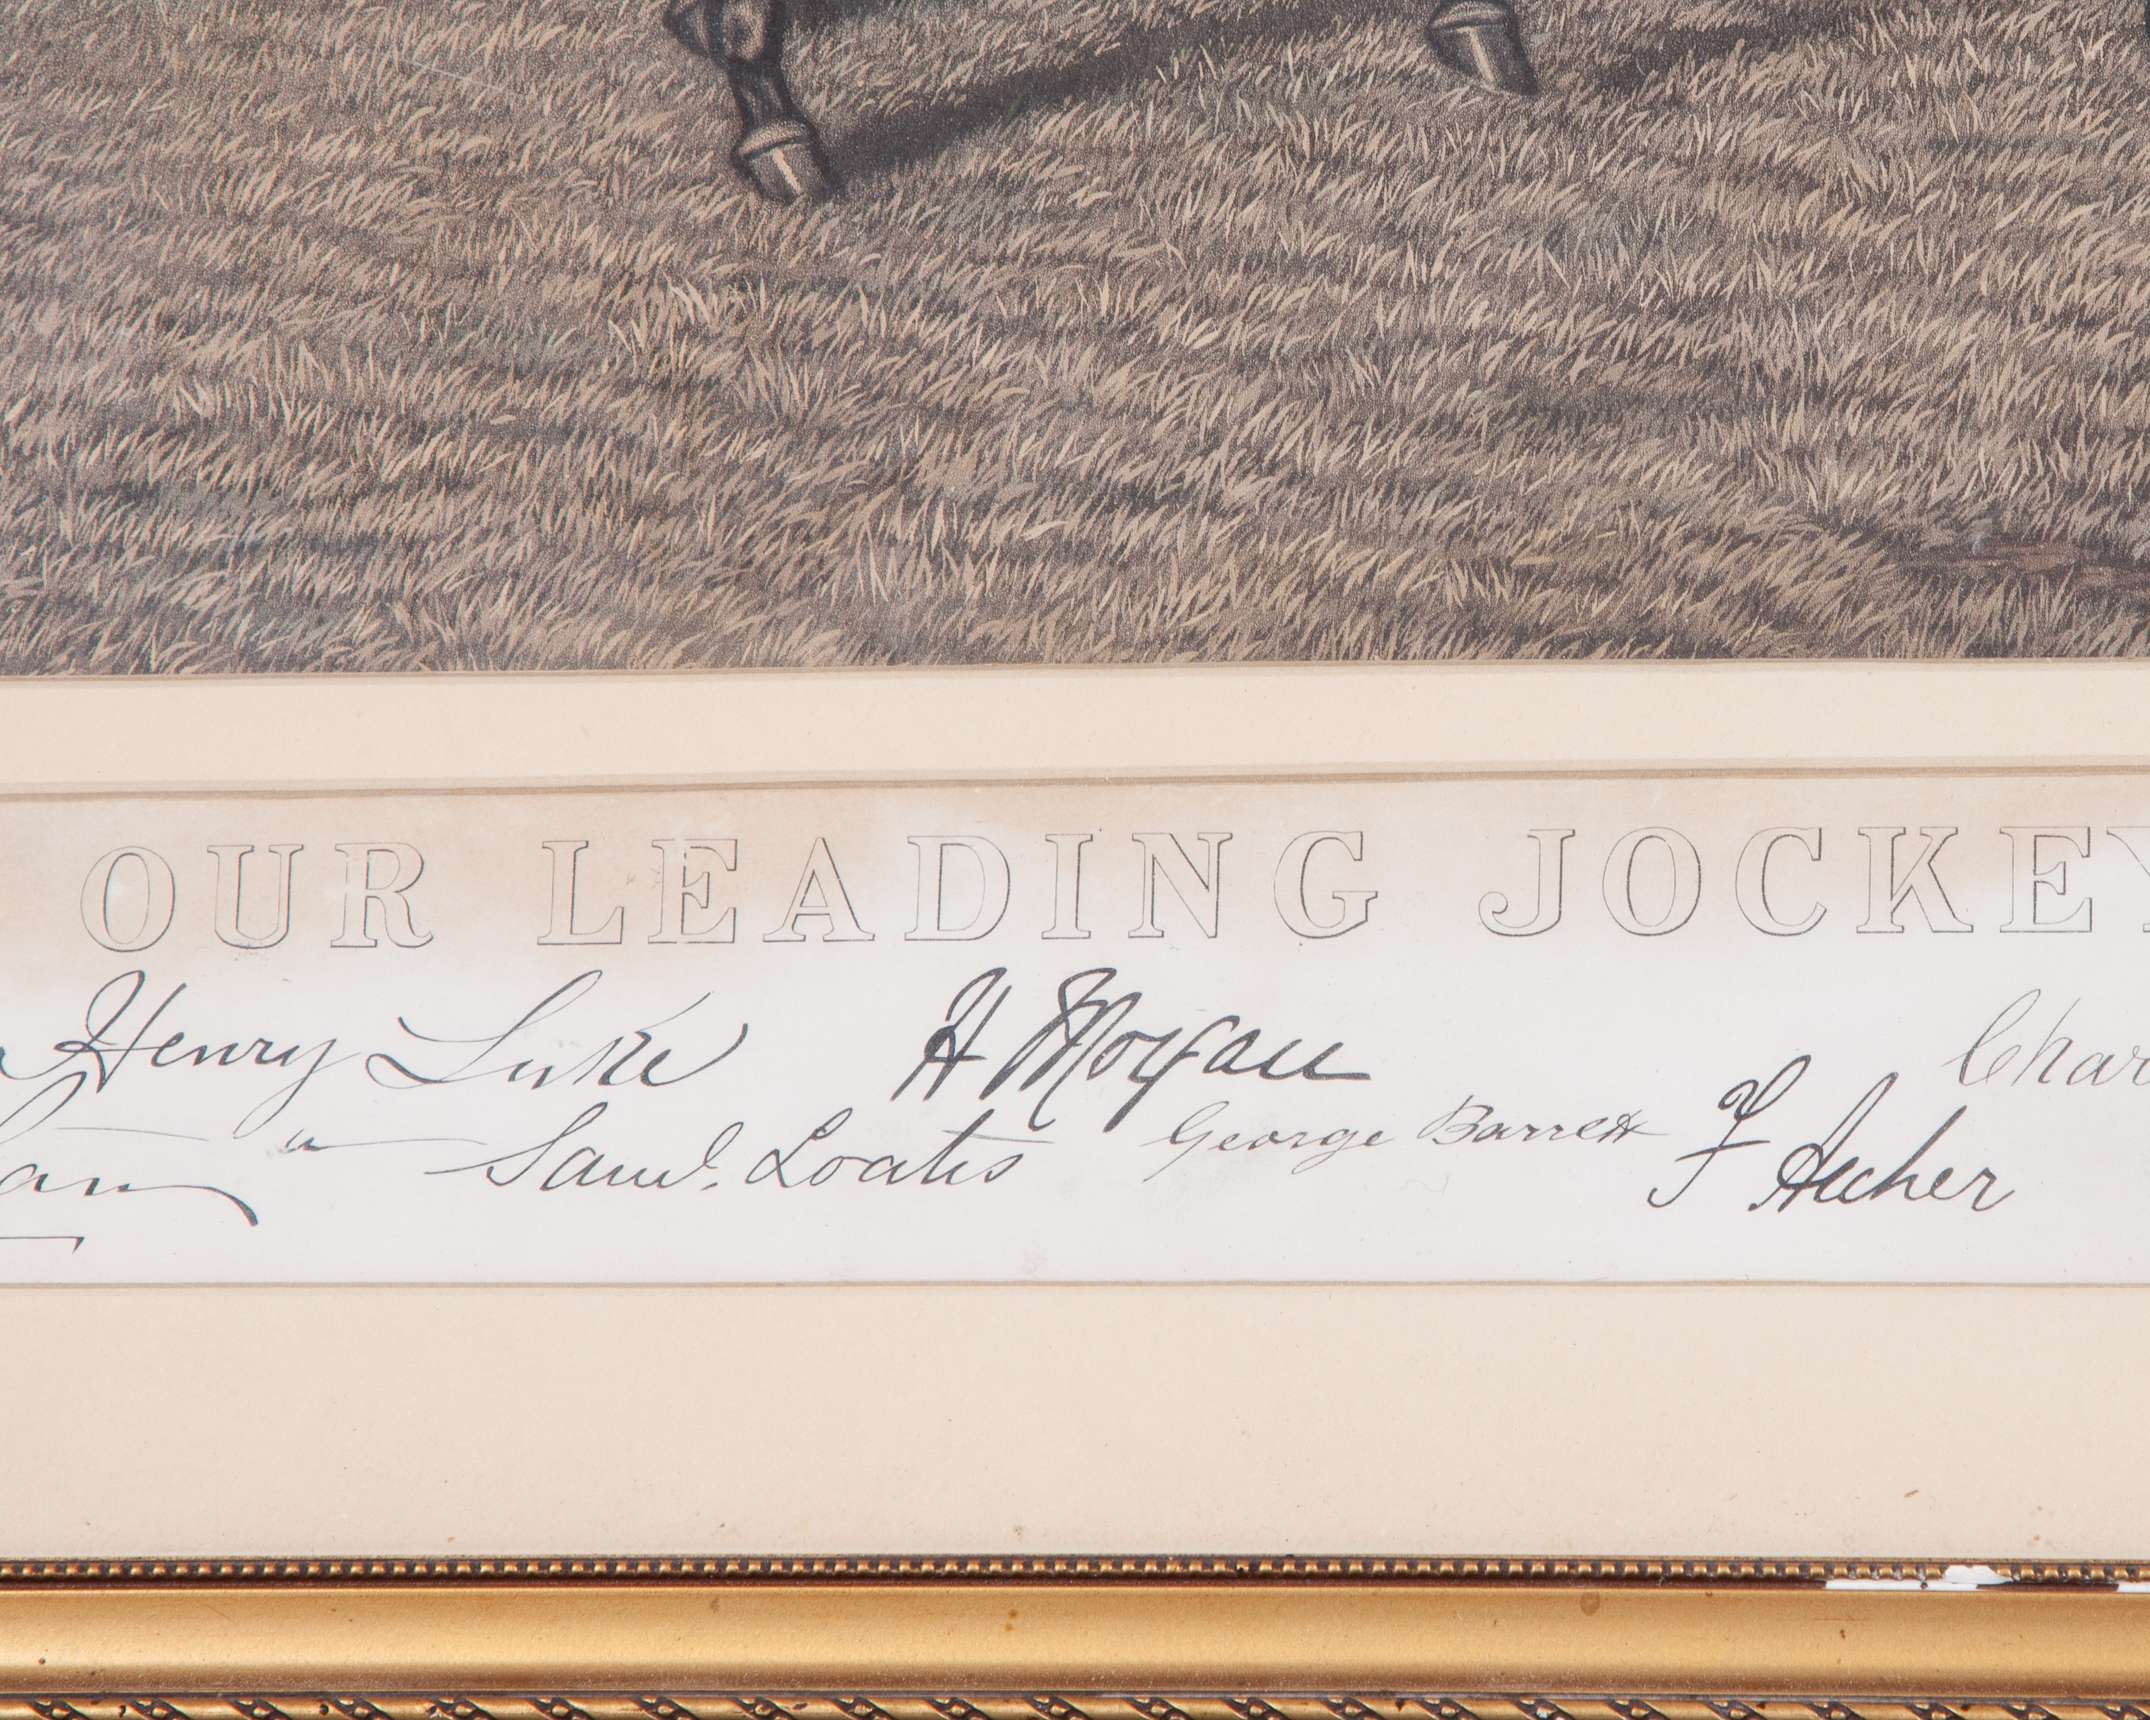 OUR LEADING JOCKEY
Henry Luke H Morgan Char
Saml. Loates George Barrett F Archer